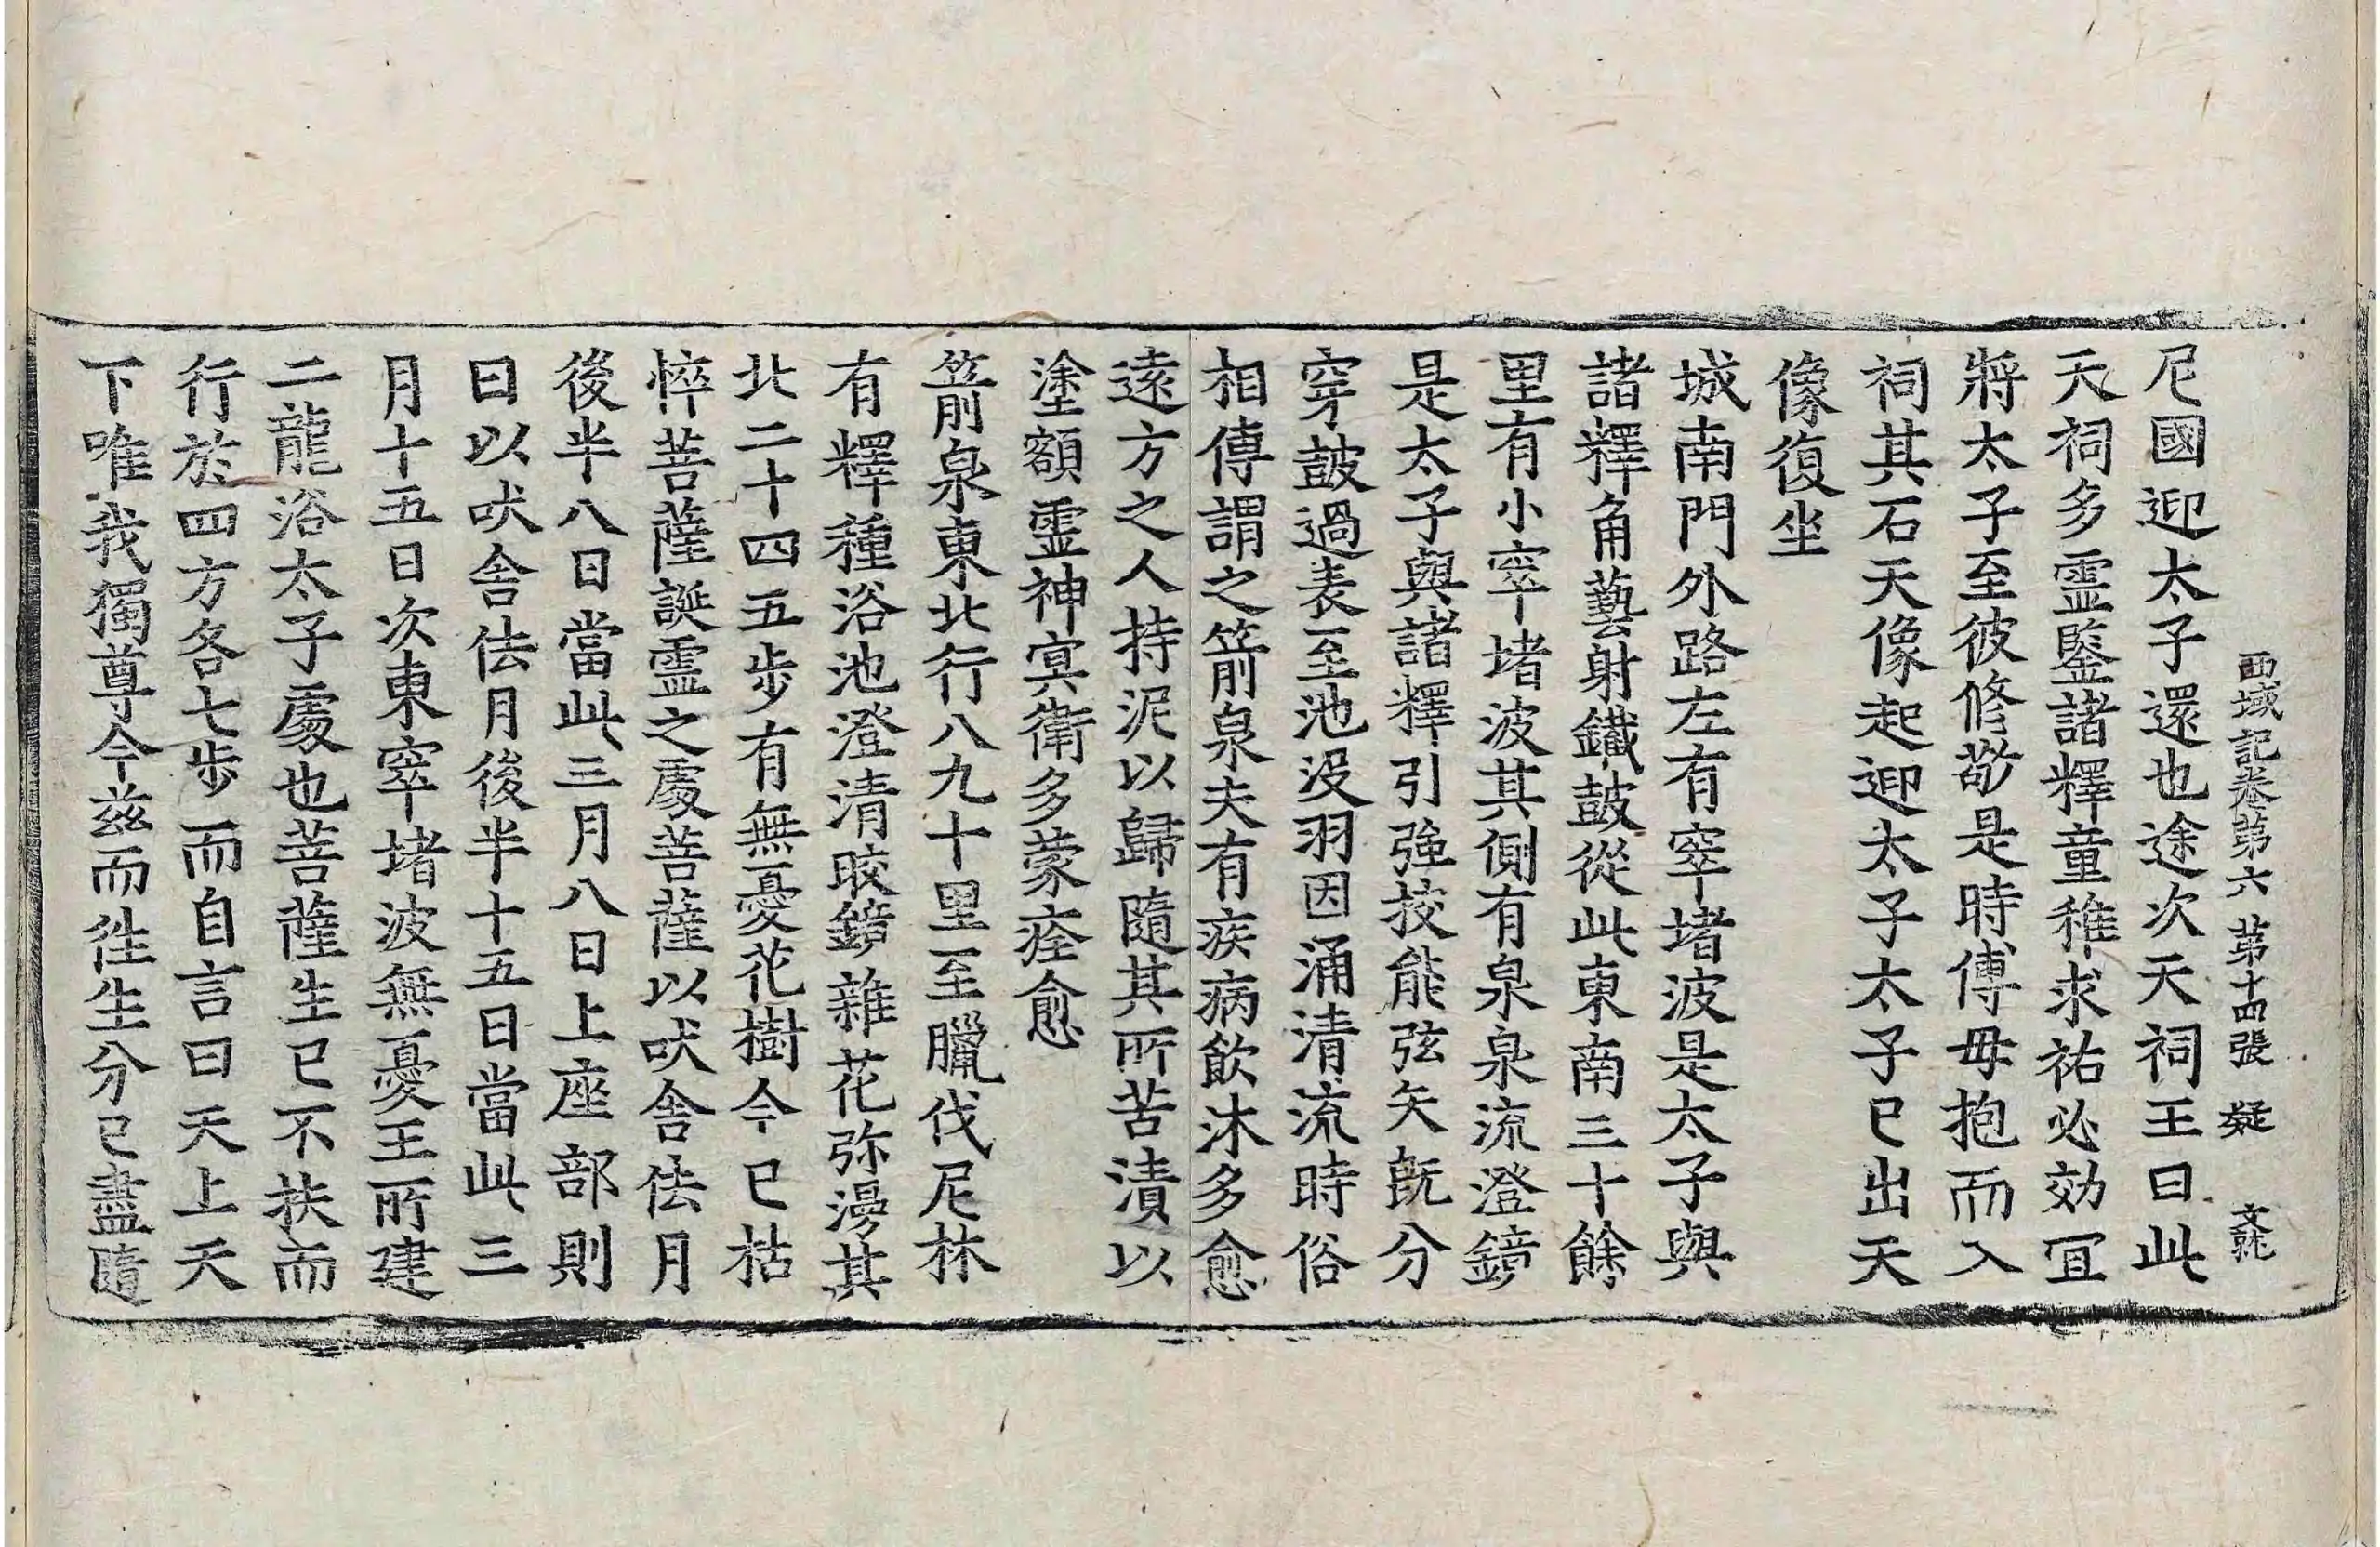 西域記卷第六 第十四張 疑
尼國迎太子還也途次天祠王曰此
天祠多靈鑒諸釋童稚求祐必効冝
將太子至彼修敬是時傅母抱而入
祠其石天像起迎太子太子已出天
像復坐
城南門外路左有窣堵波是太子與
諸釋角藝射鐵鼓從此東南三十餘
里有小窣堵波其側有泉泉流澄鏡
是太子與諸釋引強挍能弦矢旣分
穿鼓過表至池没羽因涌清流時俗
相傳謂之箭泉夫有疾病飮沐多愈
遠方之人持泥以歸隨其所苦漬以
塗額霊神冥衛多蒙痊愈
箭泉東北行八九十里至臘伐尼林
有釋種浴池澄清皎鏡雜花弥漫其
北二十四五步有無憂花樹今已枯
悴菩薩誕霊之處菩薩以吠舎佉月
後半八日當此三月八日上座部則
曰以吠舎佉月後半十五日當此三
月十五日次東窣堵波無憂王所建
二龍浴太子處也菩薩生已不扶而
行於四方各七步而自言曰天上天
下唯我獨尊今兹而徃生分已盡隨